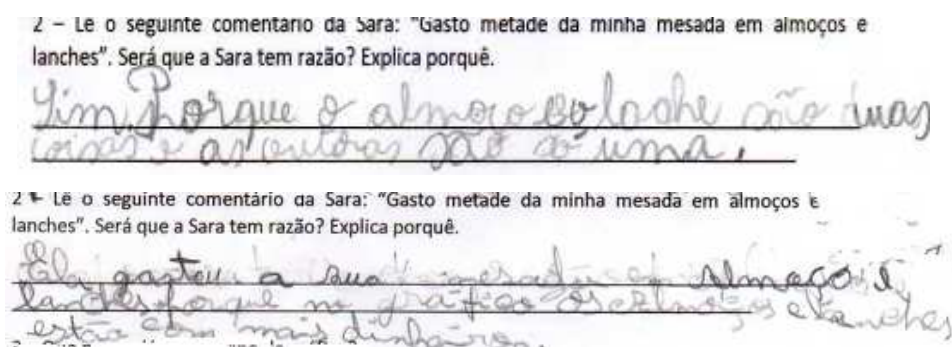 2 – Lê o seguinte comentário da Sara: "Gasto metade da minha mesada em almoços e
lanches". Será que a Sara tem razão? Explica porquê.
Sim, Porque o almoço e o lanche são duas
coisas e as outras são só uma.
2 – Lê o seguinte comentário da Sara: "Gasto metade da minha mesada em almoços e
lanches". Será que a Sara tem razão? Explica porquê.
Ela gastou a sua mesada em Almoços e
lanches porque no gráfico os almoços e lanches
estão com mais dinheiro.